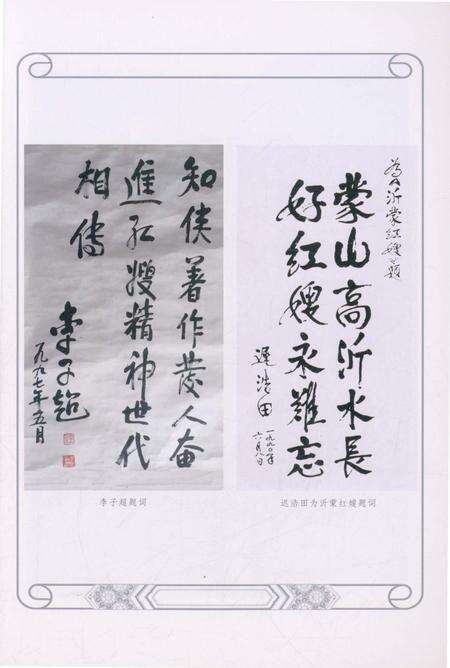 知侠著作发人奋
進红嫂精神世代
相傳
李子超
一九九七年五月
李子超题词
为沂蒙红嫂题
蒙山高沂水長
好红嫂永難忘
遲浩田
一九九〇年
六月八日
迟浩田为沂蒙红嫂题词